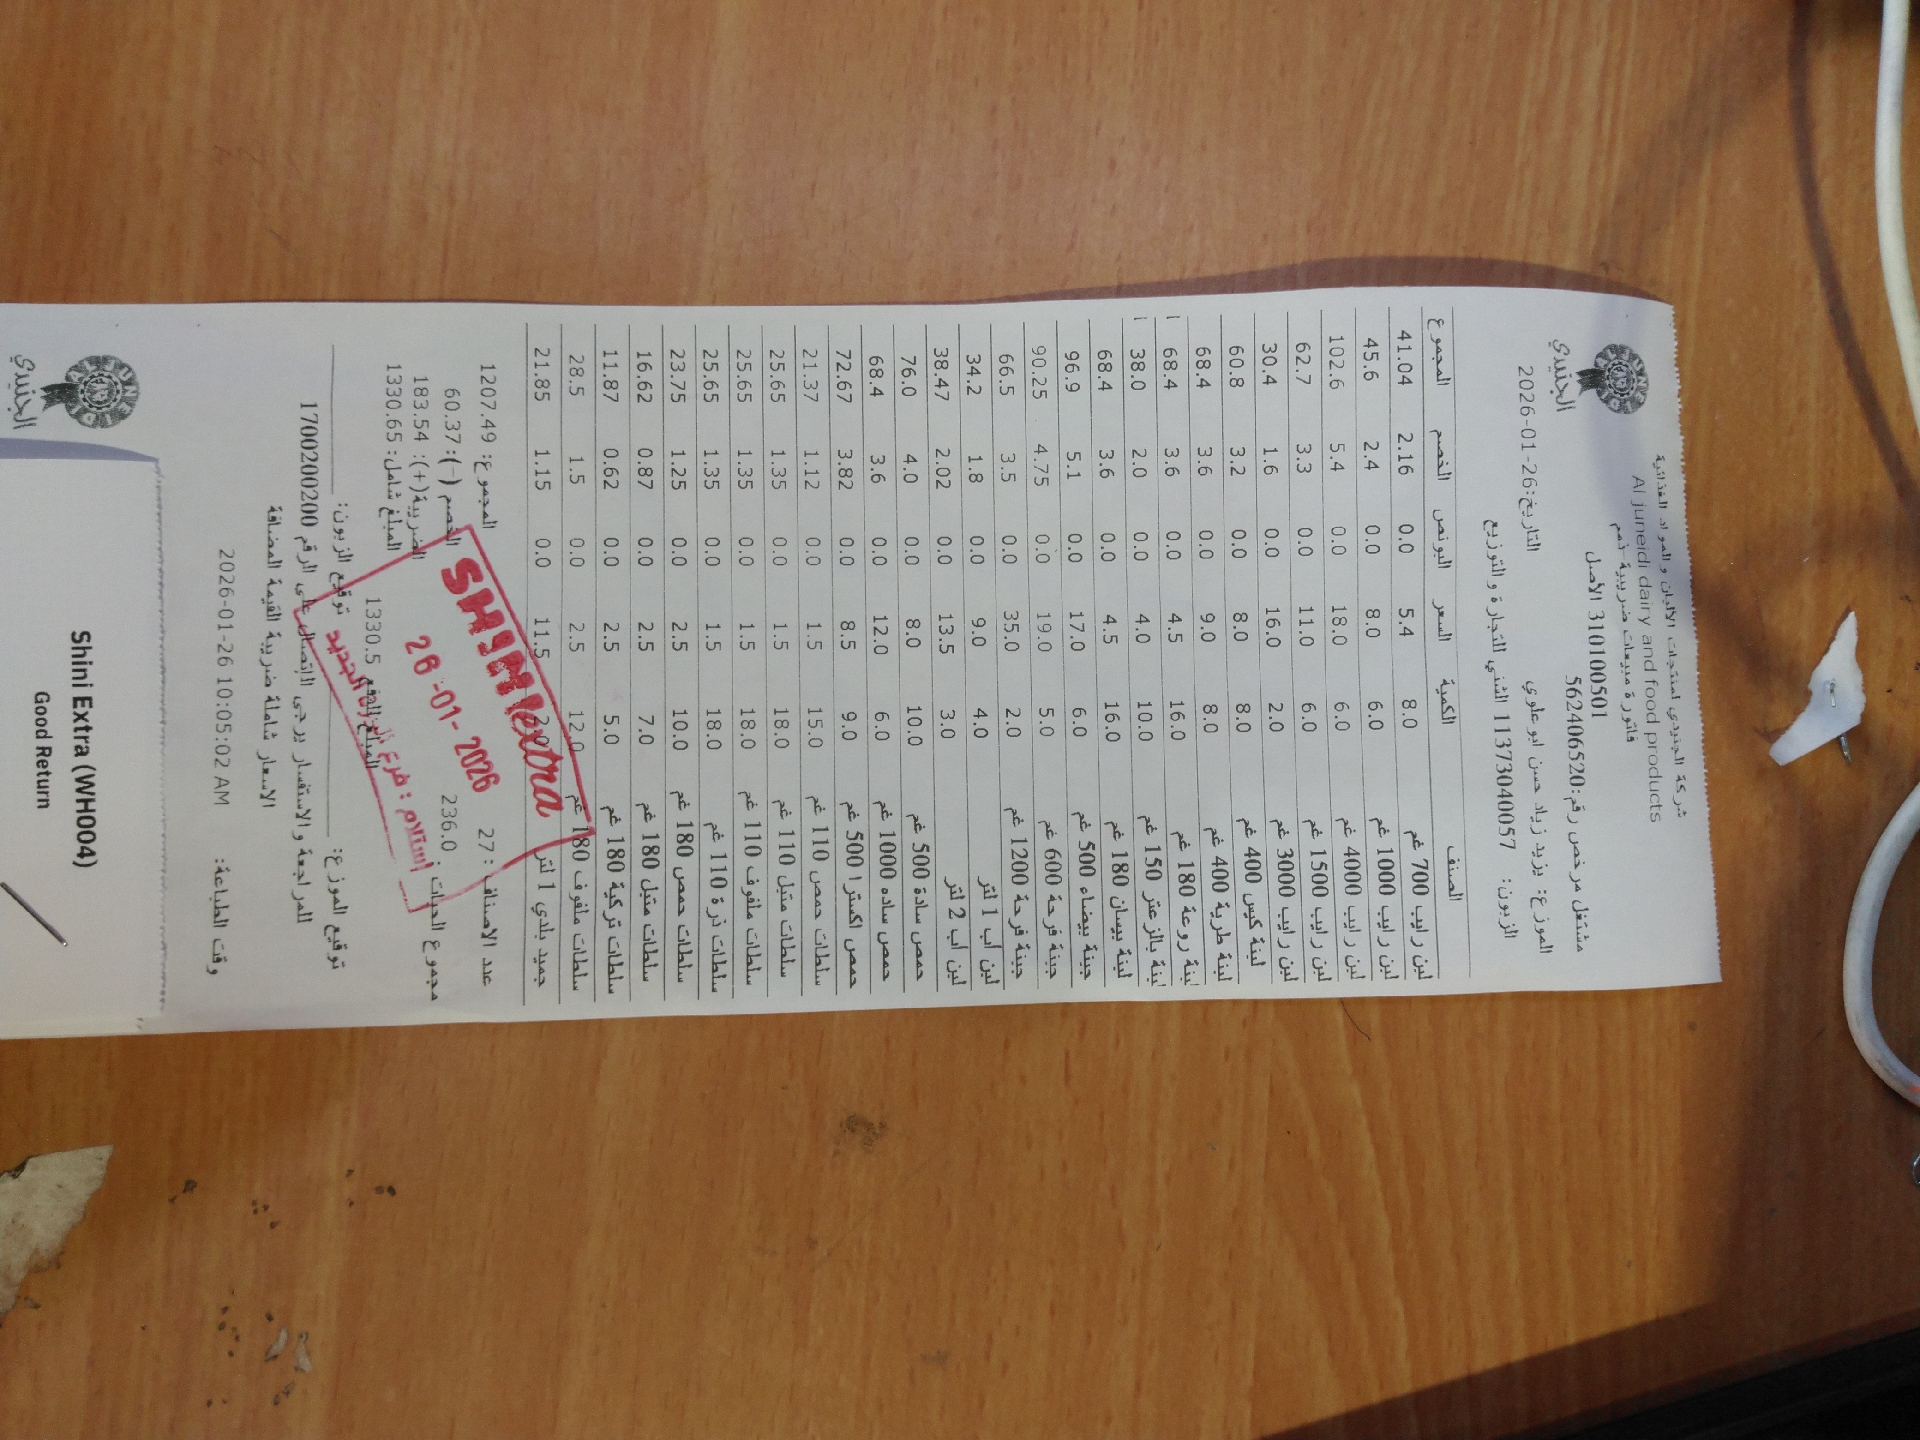 الجنيدي
شركة الجنيدي لمنتجات الألبان و المواد الغذائية
Al juneidi dairy and food products
فاتورة مبيعات ضريبية ذمم
310100501 الأصل
مشتغل مرخص رقم:562406520
التاريخ:2026-01-26
الموزع: يزيد زياد حسن ابو علوي
الزبون: 11373040057 الشني للتجارة و التوزيع
الصنف الكمية السعر البونص الخصم المجموع
لبن رايب 700 غم 8.0 5.4 0.0 2.16 41.04
لبن رايب 1000 غم 6.0 8.0 0.0 2.4 45.6
لبن رايب 4000 غم 6.0 18.0 0.0 5.4 102.6
لبن رايب 1500 غم 6.0 11.0 0.0 3.3 62.7
لبن رايب 3000 غم 2.0 16.0 0.0 1.6 30.4
لبنة كيس 400 غم 8.0 8.0 0.0 3.2 60.8
لبنة طرية 400 غم 8.0 9.0 0.0 3.6 68.4
لبنة روعة 180 غم 16.0 4.5 0.0 3.6 68.4
لبنة بالزعتر 150 غم 10.0 4.0 0.0 2.0 38.0
لبنة بيسان 180 غم 16.0 4.5 0.0 3.6 68.4
جبنة بيضاء 500 غم 6.0 17.0 0.0 5.1 96.9
جبنة فرحة 600 غم 5.0 19.0 0.0 4.75 90.25
جبنة فرحة 1200 غم 2.0 35.0 0.0 3.5 66.5
لبن اب 1 لتر 4.0 9.0 0.0 1.8 34.2
لبن اب 2 لتر 3.0 13.5 0.0 2.02 38.47
حمص سادة 500 غم 10.0 8.0 0.0 4.0 76.0
حمص ساده 1000 غم 6.0 12.0 0.0 3.6 68.4
حمص اكسترا 500 غم 9.0 8.5 0.0 3.82 72.67
سلطات حمص 110 غم 15.0 1.5 0.0 1.12 21.37
سلطات متبل 110 غم 18.0 1.5 0.0 1.35 25.65
سلطات ملفوف 110 غم 18.0 1.5 0.0 1.35 25.65
سلطات ذرة 110 غم 18.0 1.5 0.0 1.35 25.65
سلطات حمص 180 غم 10.0 2.5 0.0 1.25 23.75
سلطات متبل 180 غم 7.0 2.5 0.0 0.87 16.62
سلطات تركية 180 غم 5.0 2.5 0.0 0.62 11.87
سلطات ملفوف 180 غم 12.0 2.5 0.0 1.5 28.5
جميد بلدي 1 لتر 2.0 11.5 0.0 1.15 21.85
عدد الاصناف : 27 المجموع: 1207.49
مجموع الحبات : 236.0 الخصم (-): 60.37
الضريبة(+): 183.54
المبلغ شامل: 1330.65
المبلغ 1330.5
SHINI extra
26-01-2026
استلام : فرع
توقيع الموزع: توقيع الزبون:
للمراجعة و الاستفسار يرجى الاتصال على الرقم 1700200200
الاسعار شاملة ضريبة القيمة المضافة
وقت الطباعة: 2026-01-26 10:05:02 AM
الجنيدي
Shini Extra (WH004)
Good Return